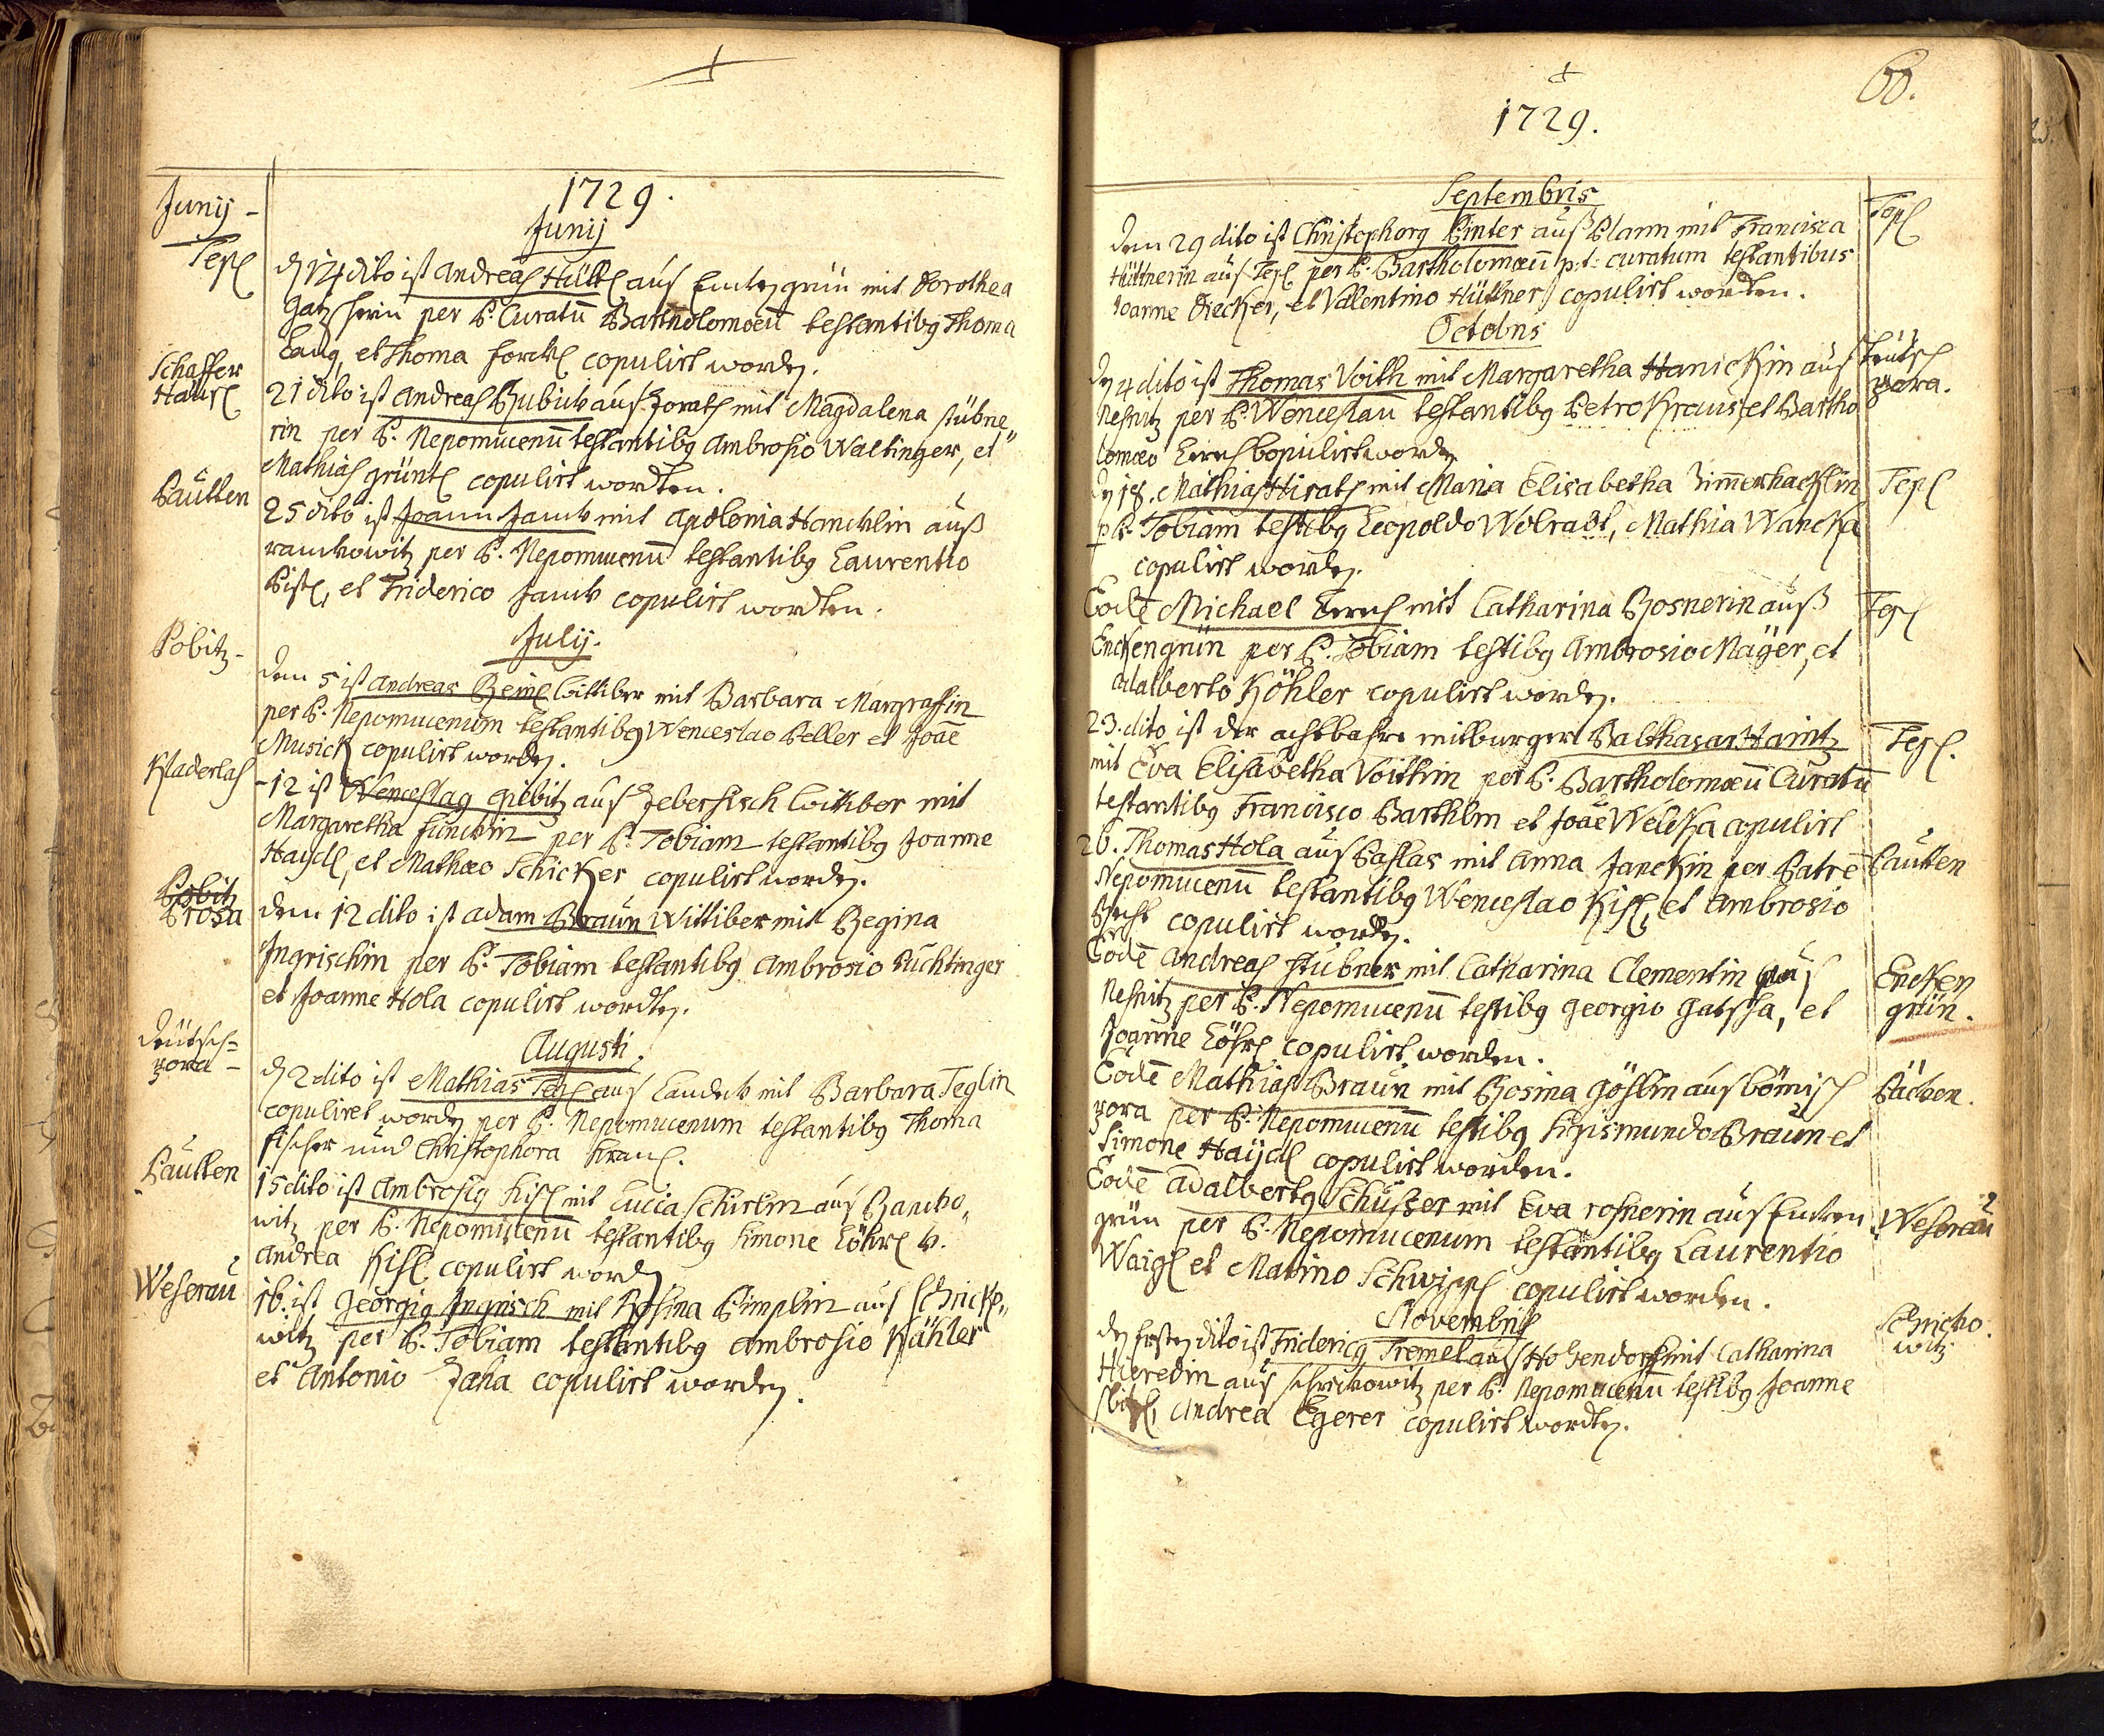 1729.
Junij -
Junij
Tepl
14 dito ist Andreas Hüttl aus grün mit Dorothea
per P. Curatū Bartholomoeū testantibg Thoma
Lang, et Thoma copulirt worden.
Schaffer
Haüsl
21 dito ist Andreas Rubick aus mit Magdalena stübne„
rin per P. Nepomucenū testantibg Ambrosio Waltinger, et
Mathias gründl copulirt wordten.
Pautten
25 dito ist Joann Janck mit Apolonia Hancklin auß
ranckowitz per P. Nepomucenū testantibg Laurentio
et Friderico Janck copulirt wordten.
Julij.
Pobitz -
dem 5 ist Andreas Beiml wittiber mit Barbara Margraffin
per P. Nepomucenum testantibg Wenceslao Peller et Joāe
Musick copulirt worden.
Kladerlas
- 12 ist Wenceslag gribitz aus wittiber mit
Margaretha Funckin per P. Tobiam testantibg Joanne
Haydl, et Mathæo Schicker copulirt worden.
Pobitz
Prosa
dem 12 dito ist Adam Braun Wittiber mit Regina
Ingrischin per P. Tobiam testantibg Ambrosio Lüchtinger
et Joanne Hola copulirt wordten.
Augusti.
deütsch=
zora -
2 dito ist Mathias Tegl aus Landeck mit Barbara Teglin
copuliret worden per P. Nepomucenum testantibg Thoma
fischer und Christophora Kraus.
Pautten
15 dito ist Ambrosig Kisl mit Lucia Schirlin aus Rancko„
witz per P. Nepomucenū testantibg Simone Löhrl
Andrea Kisl copulirt worden
Weserau
16. ist Georgig Ingrisch mit Rosina Pimplin aus Schricko„
witz per P. Tobiam testantibg Ambrosio Kähler
et Antonio Zaha copulirt worden.
60.
1729.
Septembris
dem 29 dito ist Christophorg Pinter auß Plann mit Francisca Tepl
Hüttnerin aus Tepl per P. Bartholomæū p: t: curatum testantibus
Joanne Diecker, et Valentino Hüttner copulirt wordten.
Octobris
4 dito ist Thomas Voith mit Margaretha Hanickin aus teütsch
Nesnitz per P. Wenceslaū testantibg Petro Kraus, et Bartho zora.
lomæo copulirt worden
18. Mathias Hirats mit Maria Elisabetha Zimmerhacklin Tepl
p P. Tobiam testibg Leopoldo Wolradt, Mathia Wancka
copulirt worden.
Eodē Michael mit Catharina Rosnerin auß Tepl
Enckengrün per P. Tobiam testibg Ambrosio Mäger, et
Adalberto Köhler copulirt worden.
23. dito ist der achtbahre mitburger Balthasar Haintz Tepl.
mit Eva Elisabetha Voithin per P. Bartholomæū Curatū
testantibg Francisco Barthlm et Joāe Welcka copulirt
26. Thomas Hola aus Paslas mit Anna Janckin per Patrē Pautten
Nepomucenū testantibg Wenceslao Kisl, et Ambrosio
copulirt worden.
Eodē Andreas stübner mit Catharina Clementin aus Encken
Nesnitz per P. Nepomucenū testibg Georgio Gatscha, et grün.
Joanne Löhrl copulirt worden.
Eodē Mathias Braun mit Rosina Göslin aus bömisch
zora per P. Nepomucenū testibg Sigismundo Braun et
Simone Haydl copulirt worden.
Eodē Adalbertg Schuster mit Eva rosnerin aus Encken Weserau
grün per P. Nepomucenum testantibg Laurentio
Waigl et Matino Schwippl copulirt worden.
Novembris
den Ersten dito ist Fridericg Tremel aus Hohendorf mit Catharina Schricko
Hieredin aus schrickowitz per P. Nepomucenū testibg Joanne witz
Andrea Egerer copulirt wordten.